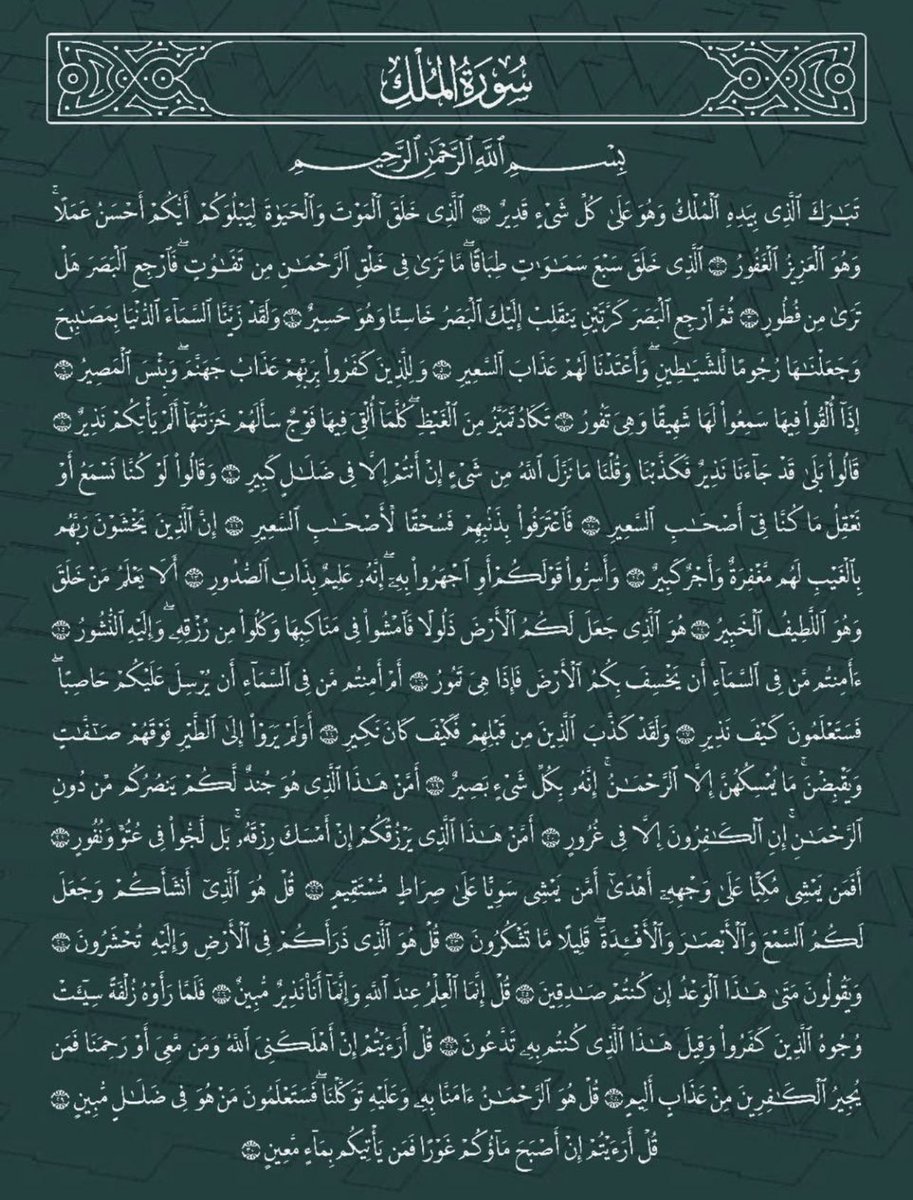 سُورَةُ المُلۡكِ
بِسۡمِ ٱللَّهِ ٱلرَّحۡمَٰنِ ٱلرَّحِيمِ
تَبَٰرَكَ ٱلَّذِي بِيَدِهِ ٱلۡمُلۡكُ وَهُوَ عَلَىٰ كُلِّ شَيۡءٖ قَدِيرٌ ١ ٱلَّذِي خَلَقَ ٱلۡمَوۡتَ وَٱلۡحَيَوٰةَ لِيَبۡلُوَكُمۡ أَيُّكُمۡ أَحۡسَنُ عَمَلٗاۚ
وَهُوَ ٱلۡعَزِيزُ ٱلۡغَفُورُ ٢ ٱلَّذِي خَلَقَ سَبۡعَ سَمَٰوَٰتٖ طِبَاقٗاۖ مَّا تَرَىٰ فِي خَلۡقِ ٱلرَّحۡمَٰنِ مِن تَفَٰوُتٖۖ فَٱرۡجِعِ ٱلۡبَصَرَ هَلۡ
تَرَىٰ مِن فُطُورٖ ٣ ثُمَّ ٱرۡجِعِ ٱلۡبَصَرَ كَرَّتَيۡنِ يَنقَلِبۡ إِلَيۡكَ ٱلۡبَصَرُ خَاسِئٗا وَهُوَ حَسِيرٞ ٤ وَلَقَدۡ زَيَّنَّا ٱلسَّمَآءَ ٱلدُّنۡيَا بِمَصَٰبِيحَ
وَجَعَلۡنَٰهَا رُجُومٗا لِّلشَّيَٰطِينِۖ وَأَعۡتَدۡنَا لَهُمۡ عَذَابَ ٱلسَّعِيرِ ٥ وَلِلَّذِينَ كَفَرُواْ بِرَبِّهِمۡ عَذَابُ جَهَنَّمَۖ وَبِئۡسَ ٱلۡمَصِيرُ ٦
إِذَآ أُلۡقُواْ فِيهَا سَمِعُواْ لَهَا شَهِيقٗا وَهِيَ تَفُورُ ٧ تَكَادُ تَمَيَّزُ مِنَ ٱلۡغَيۡظِۖ كُلَّمَآ أُلۡقِيَ فِيهَا فَوۡجٞ سَأَلَهُمۡ خَزَنَتُهَآ أَلَمۡ يَأۡتِكُمۡ نَذِيرٞ ٨
قَالُواْ بَلَىٰ قَدۡ جَآءَنَا نَذِيرٞ فَكَذَّبۡنَا وَقُلۡنَا مَا نَزَّلَ ٱللَّهُ مِن شَيۡءٍ إِنۡ أَنتُمۡ إِلَّا فِي ضَلَٰلٖ كَبِيرٖ ٩ وَقَالُواْ لَوۡ كُنَّا نَسۡمَعُ أَوۡ
نَعۡقِلُ مَا كُنَّا فِيٓ أَصۡحَٰبِ ٱلسَّعِيرِ ١٠ فَٱعۡتَرَفُواْ بِذَنۢبِهِمۡ فَسُحۡقٗا لِّأَصۡحَٰبِ ٱلسَّعِيرِ ١١ إِنَّ ٱلَّذِينَ يَخۡشَوۡنَ رَبَّهُم
بِٱلۡغَيۡبِ لَهُم مَّغۡفِرَةٞ وَأَجۡرٞ كَبِيرٞ ١٢ وَأَسِرُّواْ قَوۡلَكُمۡ أَوِ ٱجۡهَرُواْ بِهِۦٓۖ إِنَّهُۥ عَلِيمُۢ بِذَاتِ ٱلصُّدُورِ ١٣ أَلَا يَعۡلَمُ مَنۡ خَلَقَ
وَهُوَ ٱللَّطِيفُ ٱلۡخَبِيرُ ١٤ هُوَ ٱلَّذِي جَعَلَ لَكُمُ ٱلۡأَرۡضَ ذَلُولٗا فَٱمۡشُواْ فِي مَنَاكِبِهَا وَكُلُواْ مِن رِّزۡقِهِۦۖ وَإِلَيۡهِ ٱلنُّشُورُ ١٥
ءَأَمِنتُم مَّن فِي ٱلسَّمَآءِ أَن يَخۡسِفَ بِكُمُ ٱلۡأَرۡضَ فَإِذَا هِيَ تَمُورُ ١٦ أَمۡ أَمِنتُم مَّن فِي ٱلسَّمَآءِ أَن يُرۡسِلَ عَلَيۡكُمۡ حَاصِبٗاۖ
فَسَتَعۡلَمُونَ كَيۡفَ نَذِيرِ ١٧ وَلَقَدۡ كَذَّبَ ٱلَّذِينَ مِن قَبۡلِهِمۡ فَكَيۡفَ كَانَ نَكِيرِ ١٨ أَوَلَمۡ يَرَوۡاْ إِلَى ٱلطَّيۡرِ فَوۡقَهُمۡ صَٰٓفَّٰتٖ
وَيَقۡبِضۡنَۚ مَا يُمۡسِكُهُنَّ إِلَّا ٱلرَّحۡمَٰنُۚ إِنَّهُۥ بِكُلِّ شَيۡءِۭ بَصِيرٌ ١٩ أَمَّنۡ هَٰذَا ٱلَّذِي هُوَ جُندٞ لَّكُمۡ يَنصُرُكُم مِّن دُونِ
ٱلرَّحۡمَٰنِۚ إِنِ ٱلۡكَٰفِرُونَ إِلَّا فِي غُرُورٍ ٢٠ أَمَّنۡ هَٰذَا ٱلَّذِي يَرۡزُقُكُمۡ إِنۡ أَمۡسَكَ رِزۡقَهُۥۚ بَل لَّجُّواْ فِي عُتُوّٖ وَنُفُورٍ ٢١
أَفَمَن يَمۡشِي مُكِبًّا عَلَىٰ وَجۡهِهِۦٓ أَهۡدَىٰٓ أَمَّن يَمۡشِي سَوِيًّا عَلَىٰ صِرَٰطٖ مُّسۡتَقِيمٖ ٢٢ قُلۡ هُوَ ٱلَّذِيٓ أَنشَأَكُمۡ وَجَعَلَ
لَكُمُ ٱلسَّمۡعَ وَٱلۡأَبۡصَٰرَ وَٱلۡأَفۡـِٔدَةَۖ قَلِيلٗا مَّا تَشۡكُرُونَ ٢٣ قُلۡ هُوَ ٱلَّذِي ذَرَأَكُمۡ فِي ٱلۡأَرۡضِ وَإِلَيۡهِ تُحۡشَرُونَ ٢٤
وَيَقُولُونَ مَتَىٰ هَٰذَا ٱلۡوَعۡدُ إِن كُنتُمۡ صَٰدِقِينَ ٢٥ قُلۡ إِنَّمَا ٱلۡعِلۡمُ عِندَ ٱللَّهِ وَإِنَّمَآ أَنَا۠ نَذِيرٞ مُّبِينٞ ٢٦ فَلَمَّا رَأَوۡهُ زُلۡفَةٗ سِيٓـَٔتۡ
وُجُوهُ ٱلَّذِينَ كَفَرُواْ وَقِيلَ هَٰذَا ٱلَّذِي كُنتُم بِهِۦ تَدَّعُونَ ٢٧ قُلۡ أَرَءَيۡتُمۡ إِنۡ أَهۡلَكَنِيَ ٱللَّهُ وَمَن مَّعِيَ أَوۡ رَحِمَنَا فَمَن
يُجِيرُ ٱلۡكَٰفِرِينَ مِنۡ عَذَابٍ أَلِيمٖ ٢٨ قُلۡ هُوَ ٱلرَّحۡمَٰنُ ءَامَنَّا بِهِۦ وَعَلَيۡهِ تَوَكَّلۡنَاۖ فَسَتَعۡلَمُونَ مَنۡ هُوَ فِي ضَلَٰلٖ مُّبِينٖ ٢٩
قُلۡ أَرَءَيۡتُمۡ إِنۡ أَصۡبَحَ مَآؤُكُمۡ غَوۡرٗا فَمَن يَأۡتِيكُم بِمَآءٖ مَّعِينِۭ ٣٠